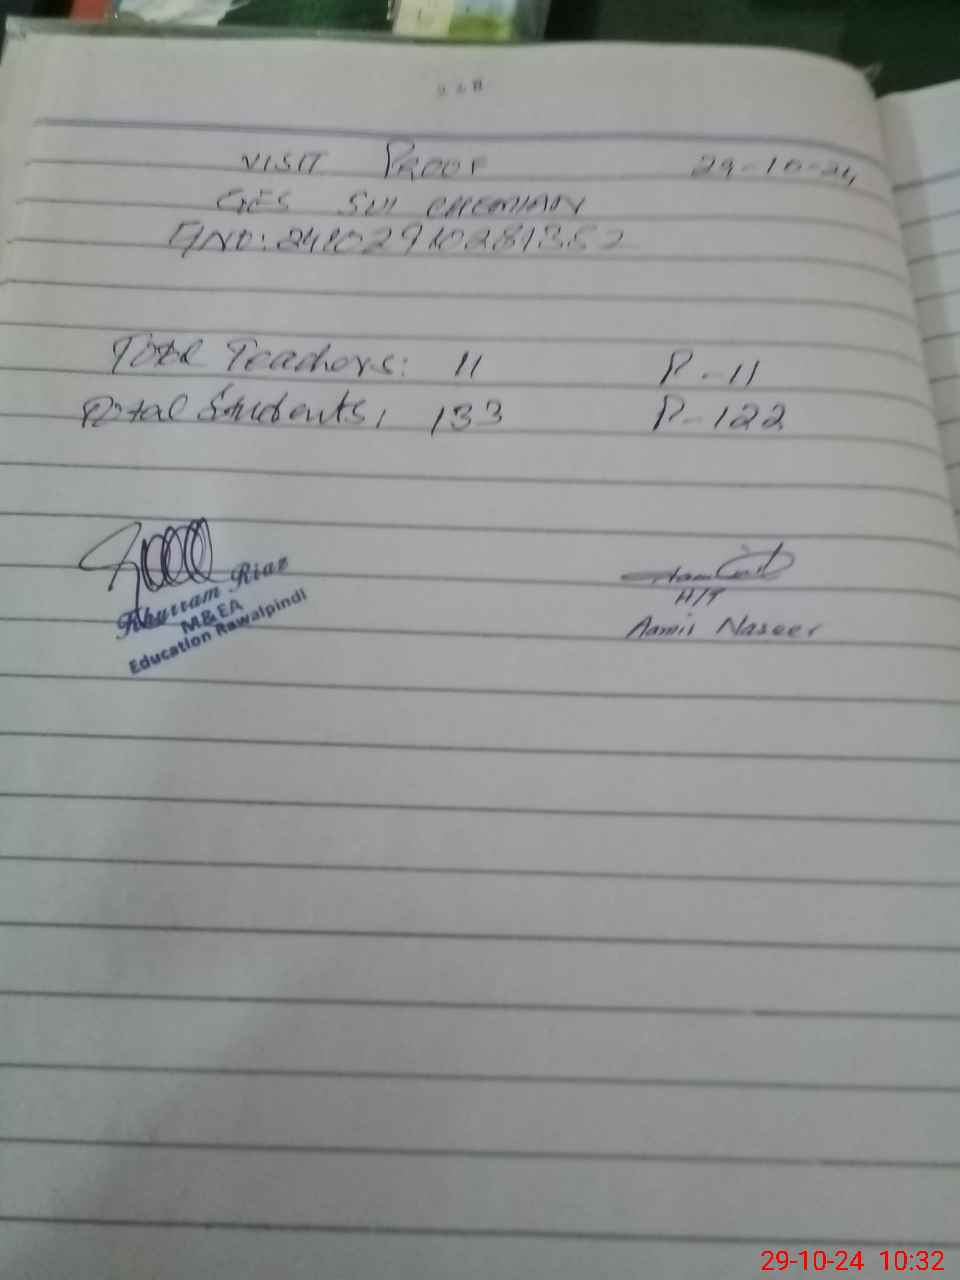 VISIT PROOF 29-10-24
GES SUI CHEMIAN
Total Teachers: 11 P-11
Total Students, 133 P-122
Khurram Riaz
M&EA
Education Rawalpindi
H/T
Aamir Naseer
29-10-24 10:32